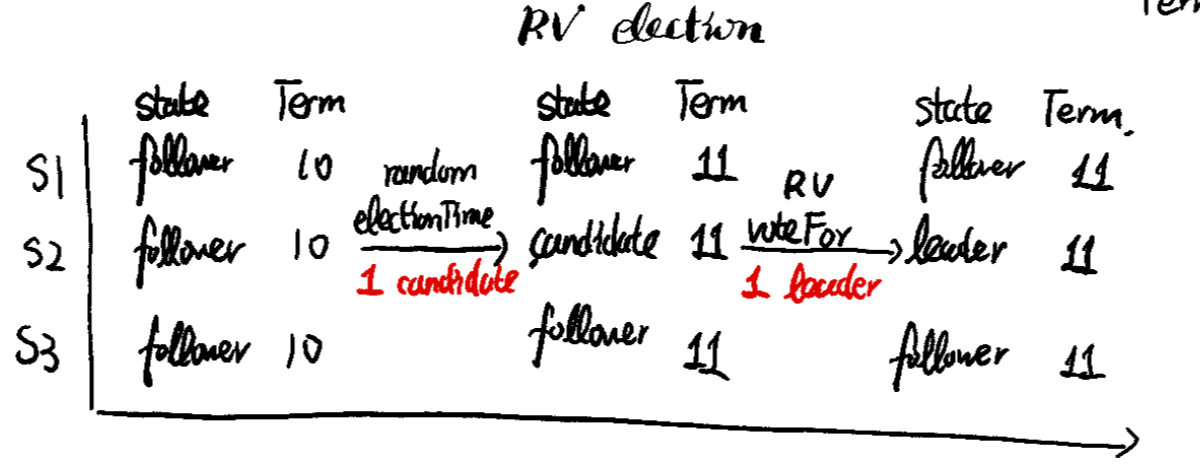 Term
RV election
state Term state Term state Term.
S1 follower 10 random follower 11 RV follower 11
S2 follower 10 electionTime candidate 11 voteFor leader 11
1 candidate 1 leader
S3 follower 10 follower 11 follower 11